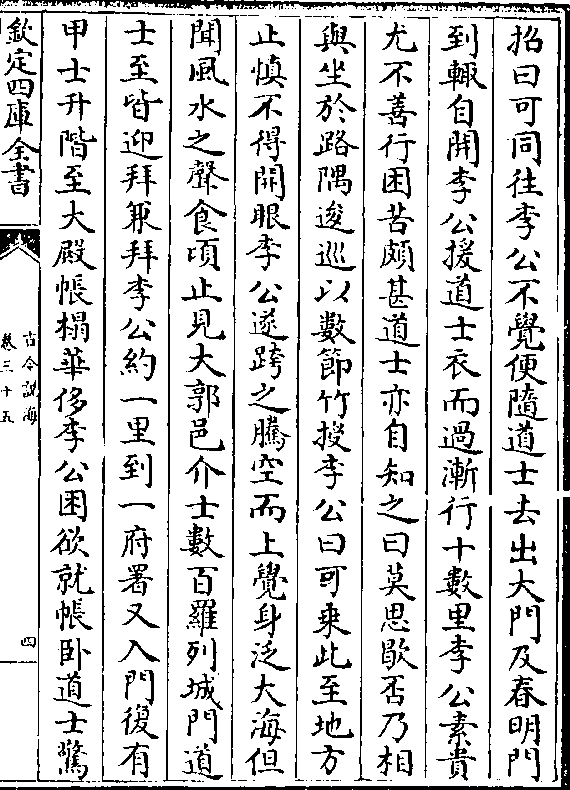 招曰可同往李公不覺便隨道士去出大門及春明門
到輙自開李公援道士衣而過漸行十數里李公素貴
尤不善行困苦頗甚道士亦自知之曰莫思歇否乃相
與坐於路隅逡巡以數節竹授李公曰可乗此至地方
止慎不得開眼李公遂跨之騰空而上覺身泛大海但
聞風水之聲食頃止見大郭邑介士數百羅列城門道
士至皆迎拜兼拜李公約一里到一府署又入門復有
甲士升階至大殿帳榻華侈李公困欲就帳卧道士驚
欽定四庫全書
古今説海
卷三十五
四